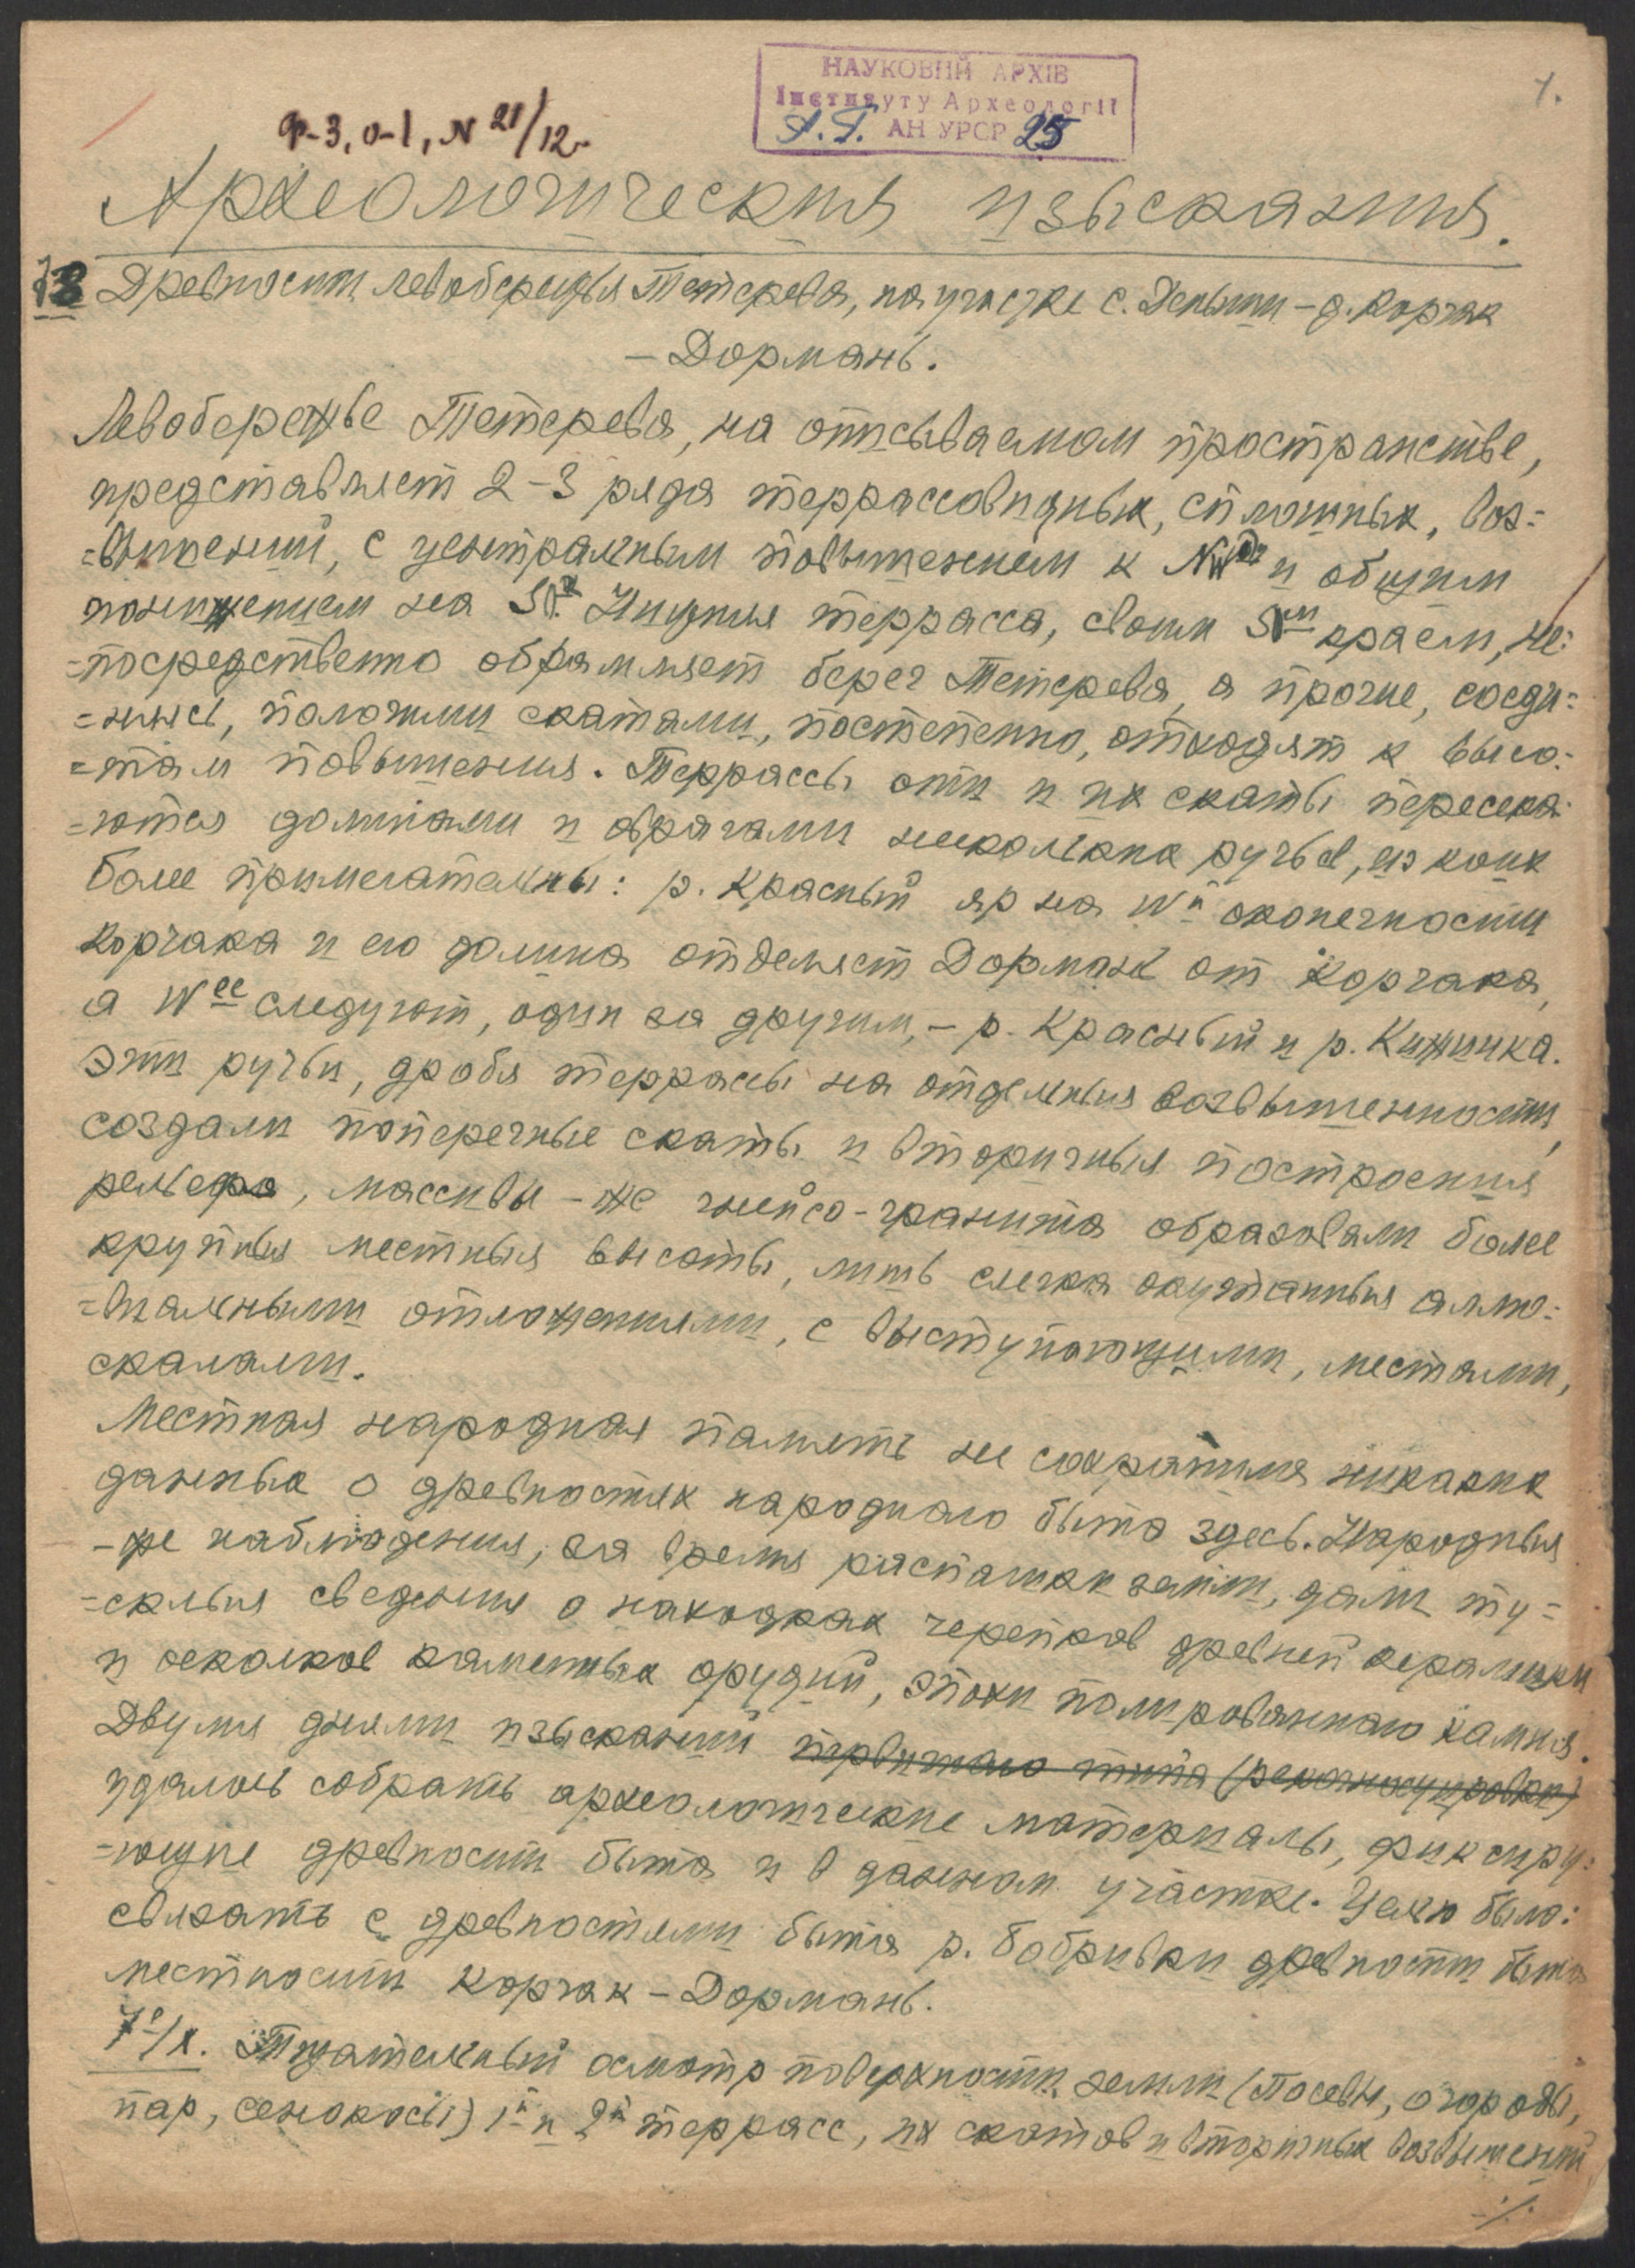 НАУКОВИЙ АРХІВ
Інституту Археології
АН УРСР 25
1.
Ф-3, о-1, N 21/12.
Археологическия изыскания.
Древности левобережья Тетерева, на участке с. Деныши – д. Корчак
– Дормань.
Левобережье Тетерева, на описываемом пространстве,
представляет 2-3 ряда террасовидных, сплошных, воз=
=вышений, с центральным повышением к NW и общим
понижением на Нижния терраса, своим краем, не=
=посредственно обрамляет берег Тетерева, а прочие, соеди=
=нянсь, пологими скатами, постепенно, отходят к высо=
=там повышения. Террасы эти и их скаты пересека=
=ются долинами и оврагами нескольких ручьев, из коих
более примечательны: р. Красный яр на Wй оконечности
Корчака и его долина отделяет Дормань от Корчака,
а Wее следуют, один за другим, – р. Красный и р. Кижинка.
Эти ручьи, дробя террасы на отдельныя возвышенности,
создали поперечные скаты и вторичныя построения
рельефа, массивы – же гнейсо-гранита образовали более
крупныя местныя высоты, лишь слегка окутанныя аллю=
=виальными отложениями, с выступающими, местами,
скалами.
Местная народная память не сохранила никаких
данных о древностях народнаго быта здесь. Народныя
– же наблюдения, за время распашки земли, дали ту=
=склыя сведения о находках черепков древней керамики
и осколков каменных орудий, эпохи полированнаго камня.
Двумя днями изысканий первичнаго типа (рекогносцировки)
удалось собрать археологические материалы, фиксиру=
=ющие древности быта и в данном участке. Целью было:
связать с древностями быта р. Бобривки древности быта
местности Корчак – Дормань.
7е/X. Тщательный осмотр поверхности земли (посевы, огороды,
пар, сенокосы) 1й и 2й террас, их скатов и вторичных возвышений
./.